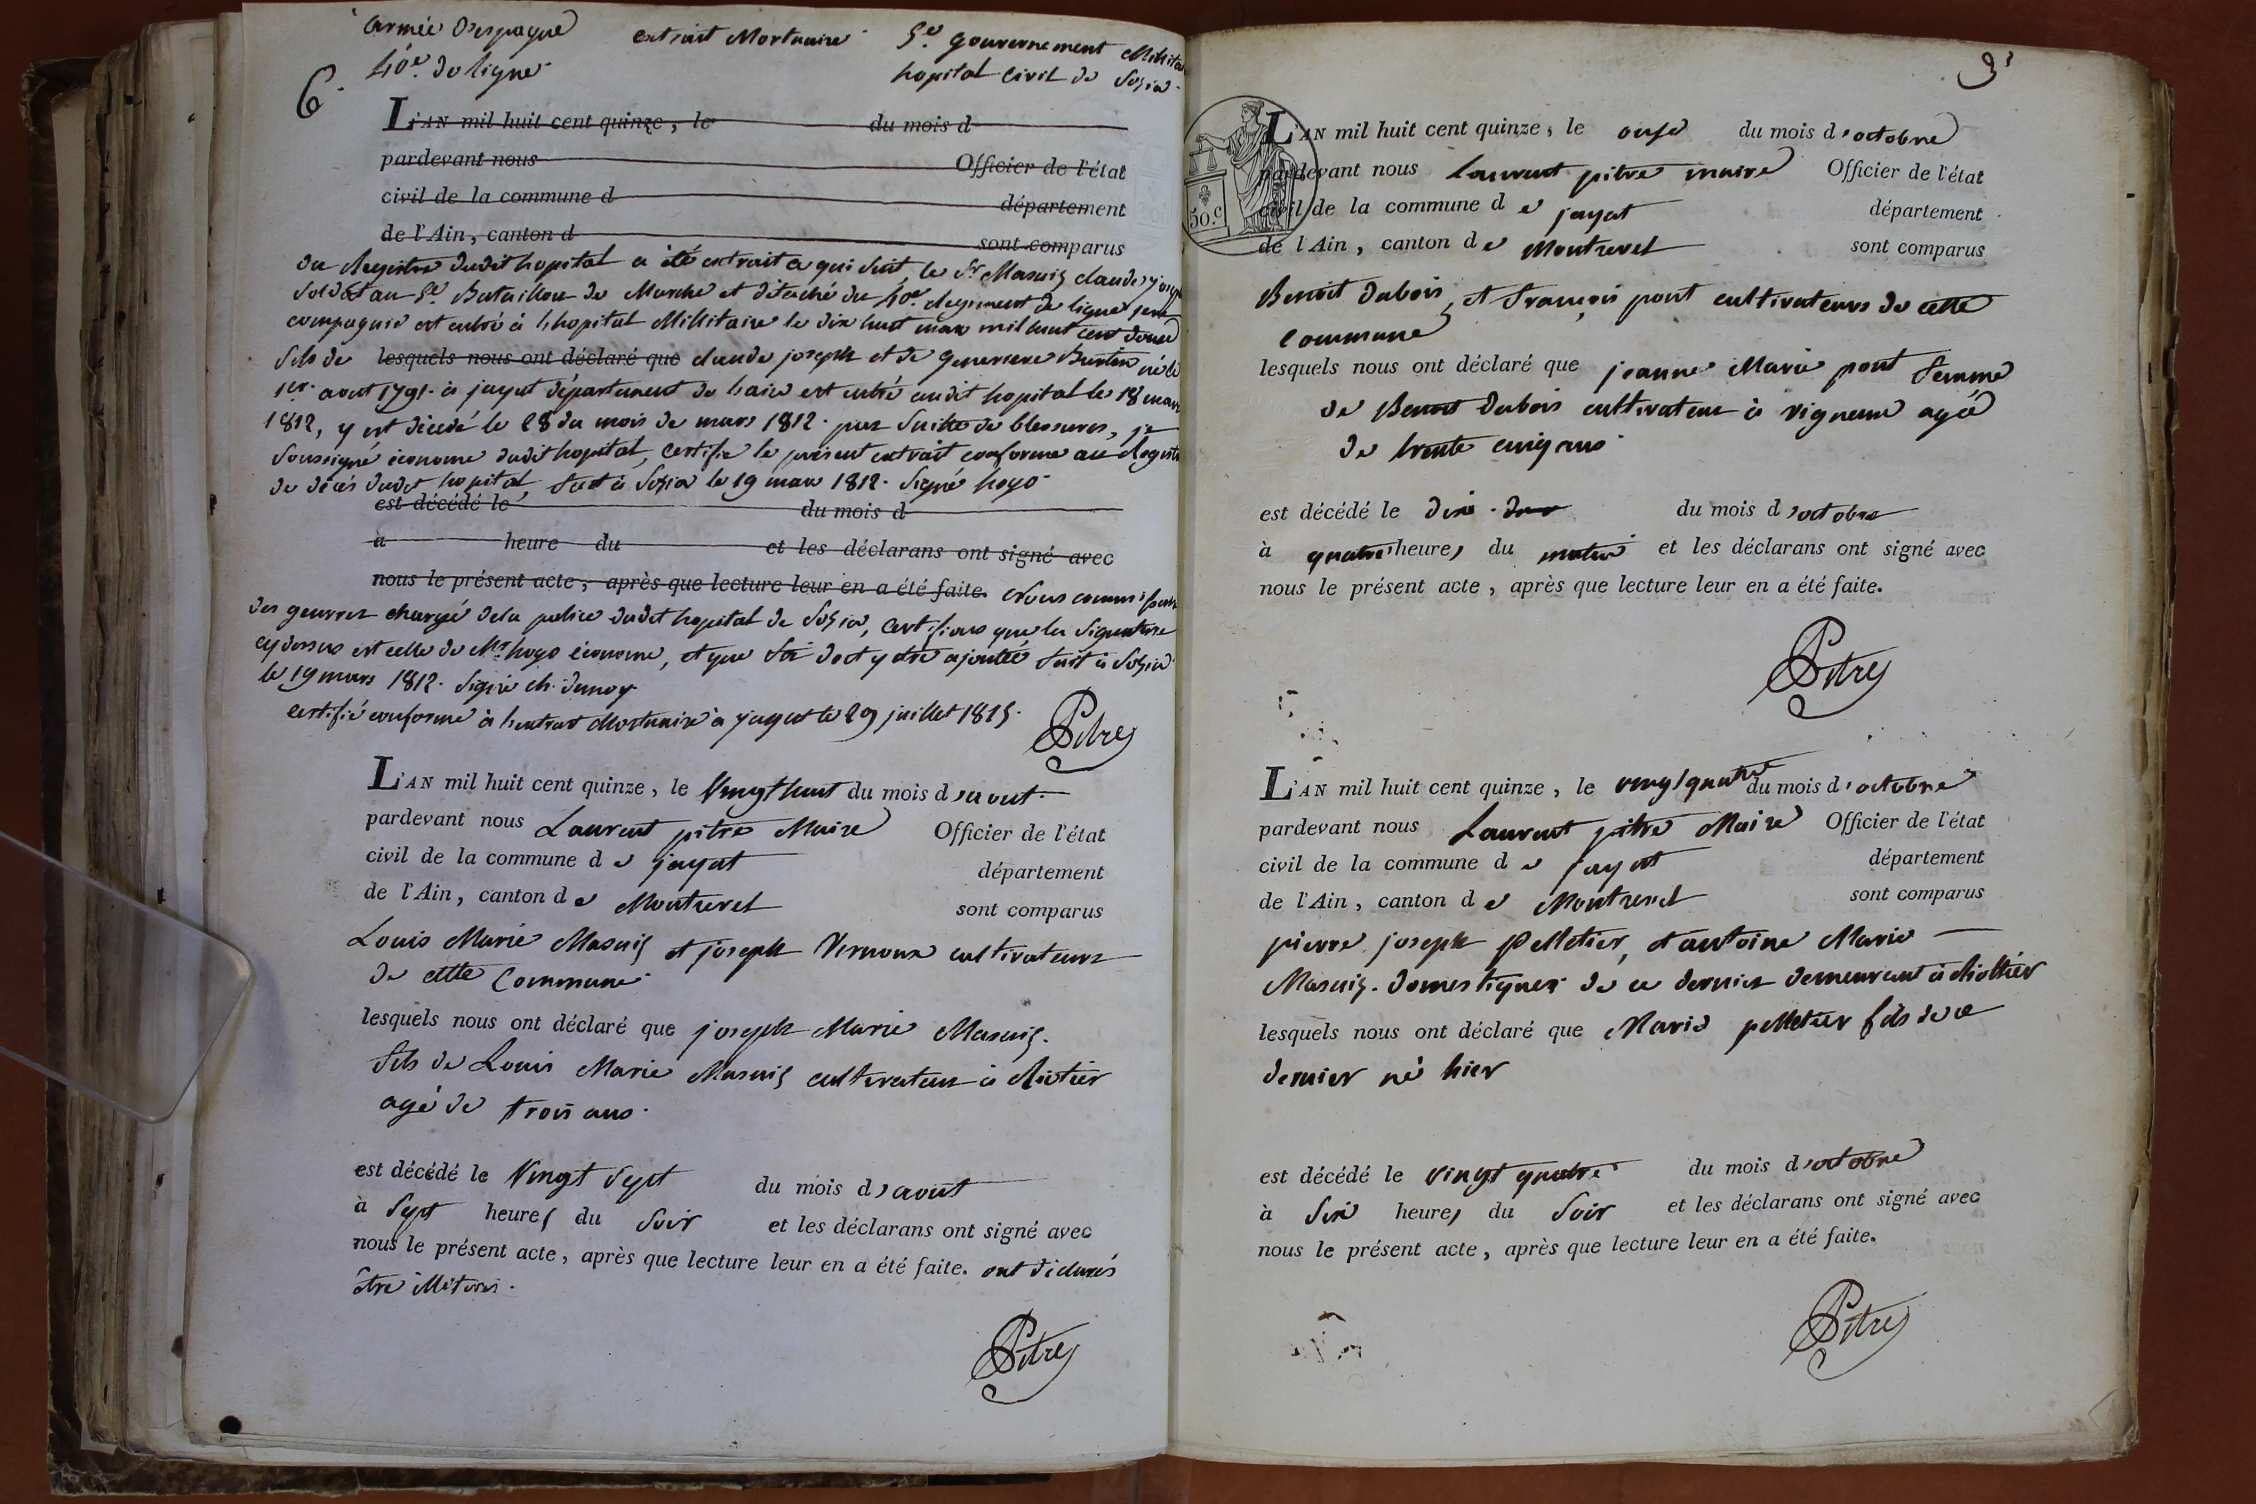 armée d'espagne extrait Mortuaire 5e. gouvernement Militai
40e. de ligne hopital civil de Soria
6.
L'AN mil huit cent quinze, le du mois d
pardevant nous Officier de l'état
civil de la commune d département
de l'Ain, canton d sont comparus
du Registre dudit hopital a été extrait ce qui suit, le Sr. Masuis claude joseph
Soldat au 5e. Bataillon de Marche et détaché du 40e. Regiment de ligne
compagnie est entré à l'hopital Militaire le dix huit mars mil huit cent douze
fils de lesquels nous ont déclaré que claude joseph et de genevieve né le
1er. aout 1791. à jayat département de l'ain est entré audit hopital le 18 mars
1812, y est décédé le 28 du mois de mars 1812. par Suitte de blessures, je
Soussigné économe dudit hopital, certifie le présent extrait conforme au Registre
de décés dudit hopital, fait à Soria le 19 mars 1812. Signé hoyo
est décédé le du mois d
à heure du et les déclarans ont signé avec
nous le présent acte, après que lecture leur en a été faite. Nous commissaire
des guerres chargé de la police dudit hopital de Soria, certifions que la signature
cy dessus est celle de Mr. hoyo économe, et que foi doit y etre ajoutée fait à Soria
le 19 mars 1812. Signé ch. dunoy
certifié conforme à l'extrait Mortuaire à jayat le 29 juillet 1815.
Pitre
L'AN mil huit cent quinze, le Vingt huit du mois d'aout
pardevant nous Laurent pitre Maire Officier de l'état
civil de la commune de jayat département
de l'Ain, canton de Montrevel sont comparus
Louis Marie Masuis et joseph Vernoux cultivateurs
de cette Commune
lesquels nous ont déclaré que joseph Marie Masuis.
fils de Louis Marie Masuis cultivateur à
agé de trois ans.
est décédé le Vingt Sept du mois d'aout
à Sept heures du Soir et les déclarans ont signé avec
nous le présent acte, après que lecture leur en a été faite. ont déclarés
être illetrés.
Pitre
3
L'AN mil huit cent quinze, le onze du mois d'octobre
pardevant nous Laurent pitre maire Officier de l'état
civil de la commune de jayat département
de l'Ain, canton de Montrevel sont comparus
50.c
Benoit Dubois, et françois pont cultivateurs de cette
commune
lesquels nous ont déclaré que jeanne Marie pont femme
de Benoit Dubois cultivateur à agée
de trente cinq ans
est décédé le dix du mois d'octobre
à quatre heures du matin et les déclarans ont signé avec
nous le présent acte, après que lecture leur en a été faite.
Pitre
L'AN mil huit cent quinze, le vingt quatre du mois d'octobre
pardevant nous Laurent pitre Maire Officier de l'état
civil de la commune de jayat département
de l'Ain, canton de Montrevel sont comparus
pierre joseph pelletier, et antoine Marie
Masuis. domestiques de ce dernier demeurant à
lesquels nous ont déclaré que Marie pelletier fils de ce
dernier né hier
est décédé le vingt quatre du mois d'octobre
à Six heures du Soir et les déclarans ont signé avec
nous le présent acte, après que lecture leur en a été faite.
Pitre